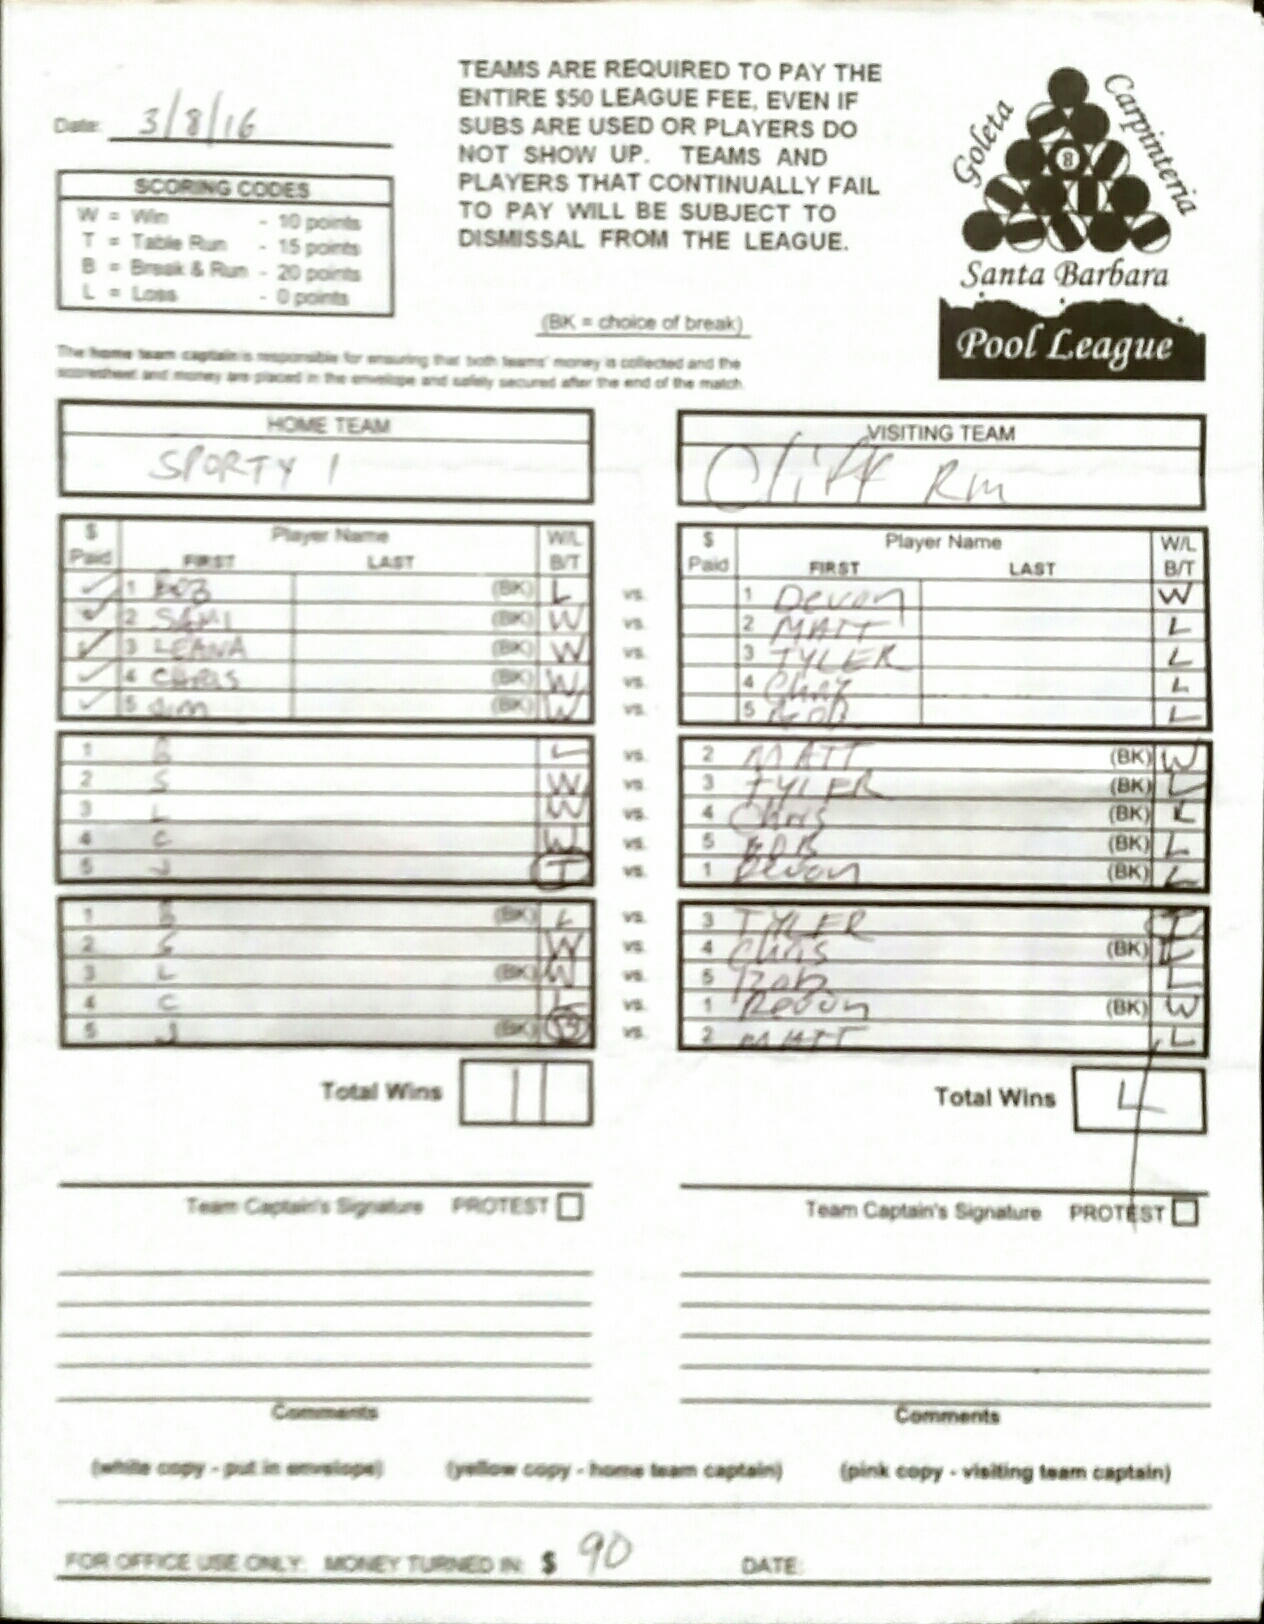 Date: 3/8/16
TEAMS ARE REQUIRED TO PAY THE
ENTIRE $50 LEAGUE FEE, EVEN IF
SUBS ARE USED OR PLAYERS DO
NOT SHOW UP. TEAMS AND
PLAYERS THAT CONTINUALLY FAIL
TO PAY WILL BE SUBJECT TO
DISMISSAL FROM THE LEAGUE.
Goleta
Carpinteria
8
Santa Barbara
Pool League
SCORING CODES
W = Win - 10 points
T = Table Run - 15 points
B = Break & Run - 20 points
L = Loss - 0 points
(BK = choice of break)
The home team captain is responsible for ensuring that both teams' money is collected and the
scoresheet and money are placed in the envelope and safely secured after the end of the match.
HOME TEAM
SPORTY 1
VISITING TEAM
Cliff Rm
$ Paid Player Name FIRST LAST W/L B/T
$ Paid Player Name FIRST LAST W/L B/T
1 BOB (BK) L vs. 1 Devon W
2 SAMI (BK) W vs. 2 MATT L
3 LEANA (BK) W vs. 3 TYLER L
4 CHRIS (BK) W vs. 4 L
5 Jim (BK) W vs. 5 L
1 B L vs. 2 MATT (BK) W
2 S W vs. 3 TYLER (BK) L
3 L W vs. 4 Chris (BK) L
4 C W vs. 5 BOB (BK) L
5 J T vs. 1 Devon (BK) L
1 B (BK) L vs. 3 TYLER T
2 S W vs. 4 Chris (BK) L
3 L (BK) W vs. 5 Bob L
4 C L vs. 1 Devon (BK) W
5 J (BK) vs. 2 MATT L
Total Wins 11
Total Wins 4
Team Captain's Signature PROTEST
Team Captain's Signature PROTEST
Comments
Comments
(white copy - put in envelope) (yellow copy - home team captain) (pink copy - visiting team captain)
FOR OFFICE USE ONLY: MONEY TURNED IN: $ 90 DATE: